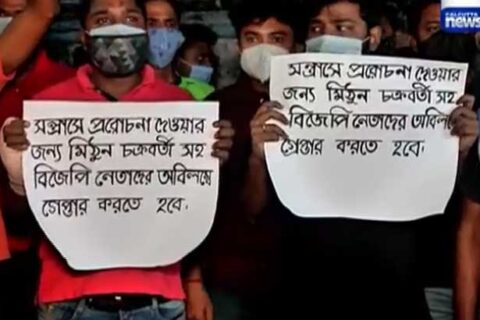 CALCUTTA
news
সন্ত্রাসে প্ররোচনা দেওয়ার
জন্য মিঠুন চক্রবর্তী সহ
বিজেপি নেতাদের অবিলম্বে
গ্রেপ্তার করতে হবে.
সন্ত্রাসে প্ররোচনা দেওয়ার
জন্য মিঠুন চক্রবর্তী সহ
বিজেপি নেতাদের অবিলম্বে
গ্রেপ্তার করতে হবে.